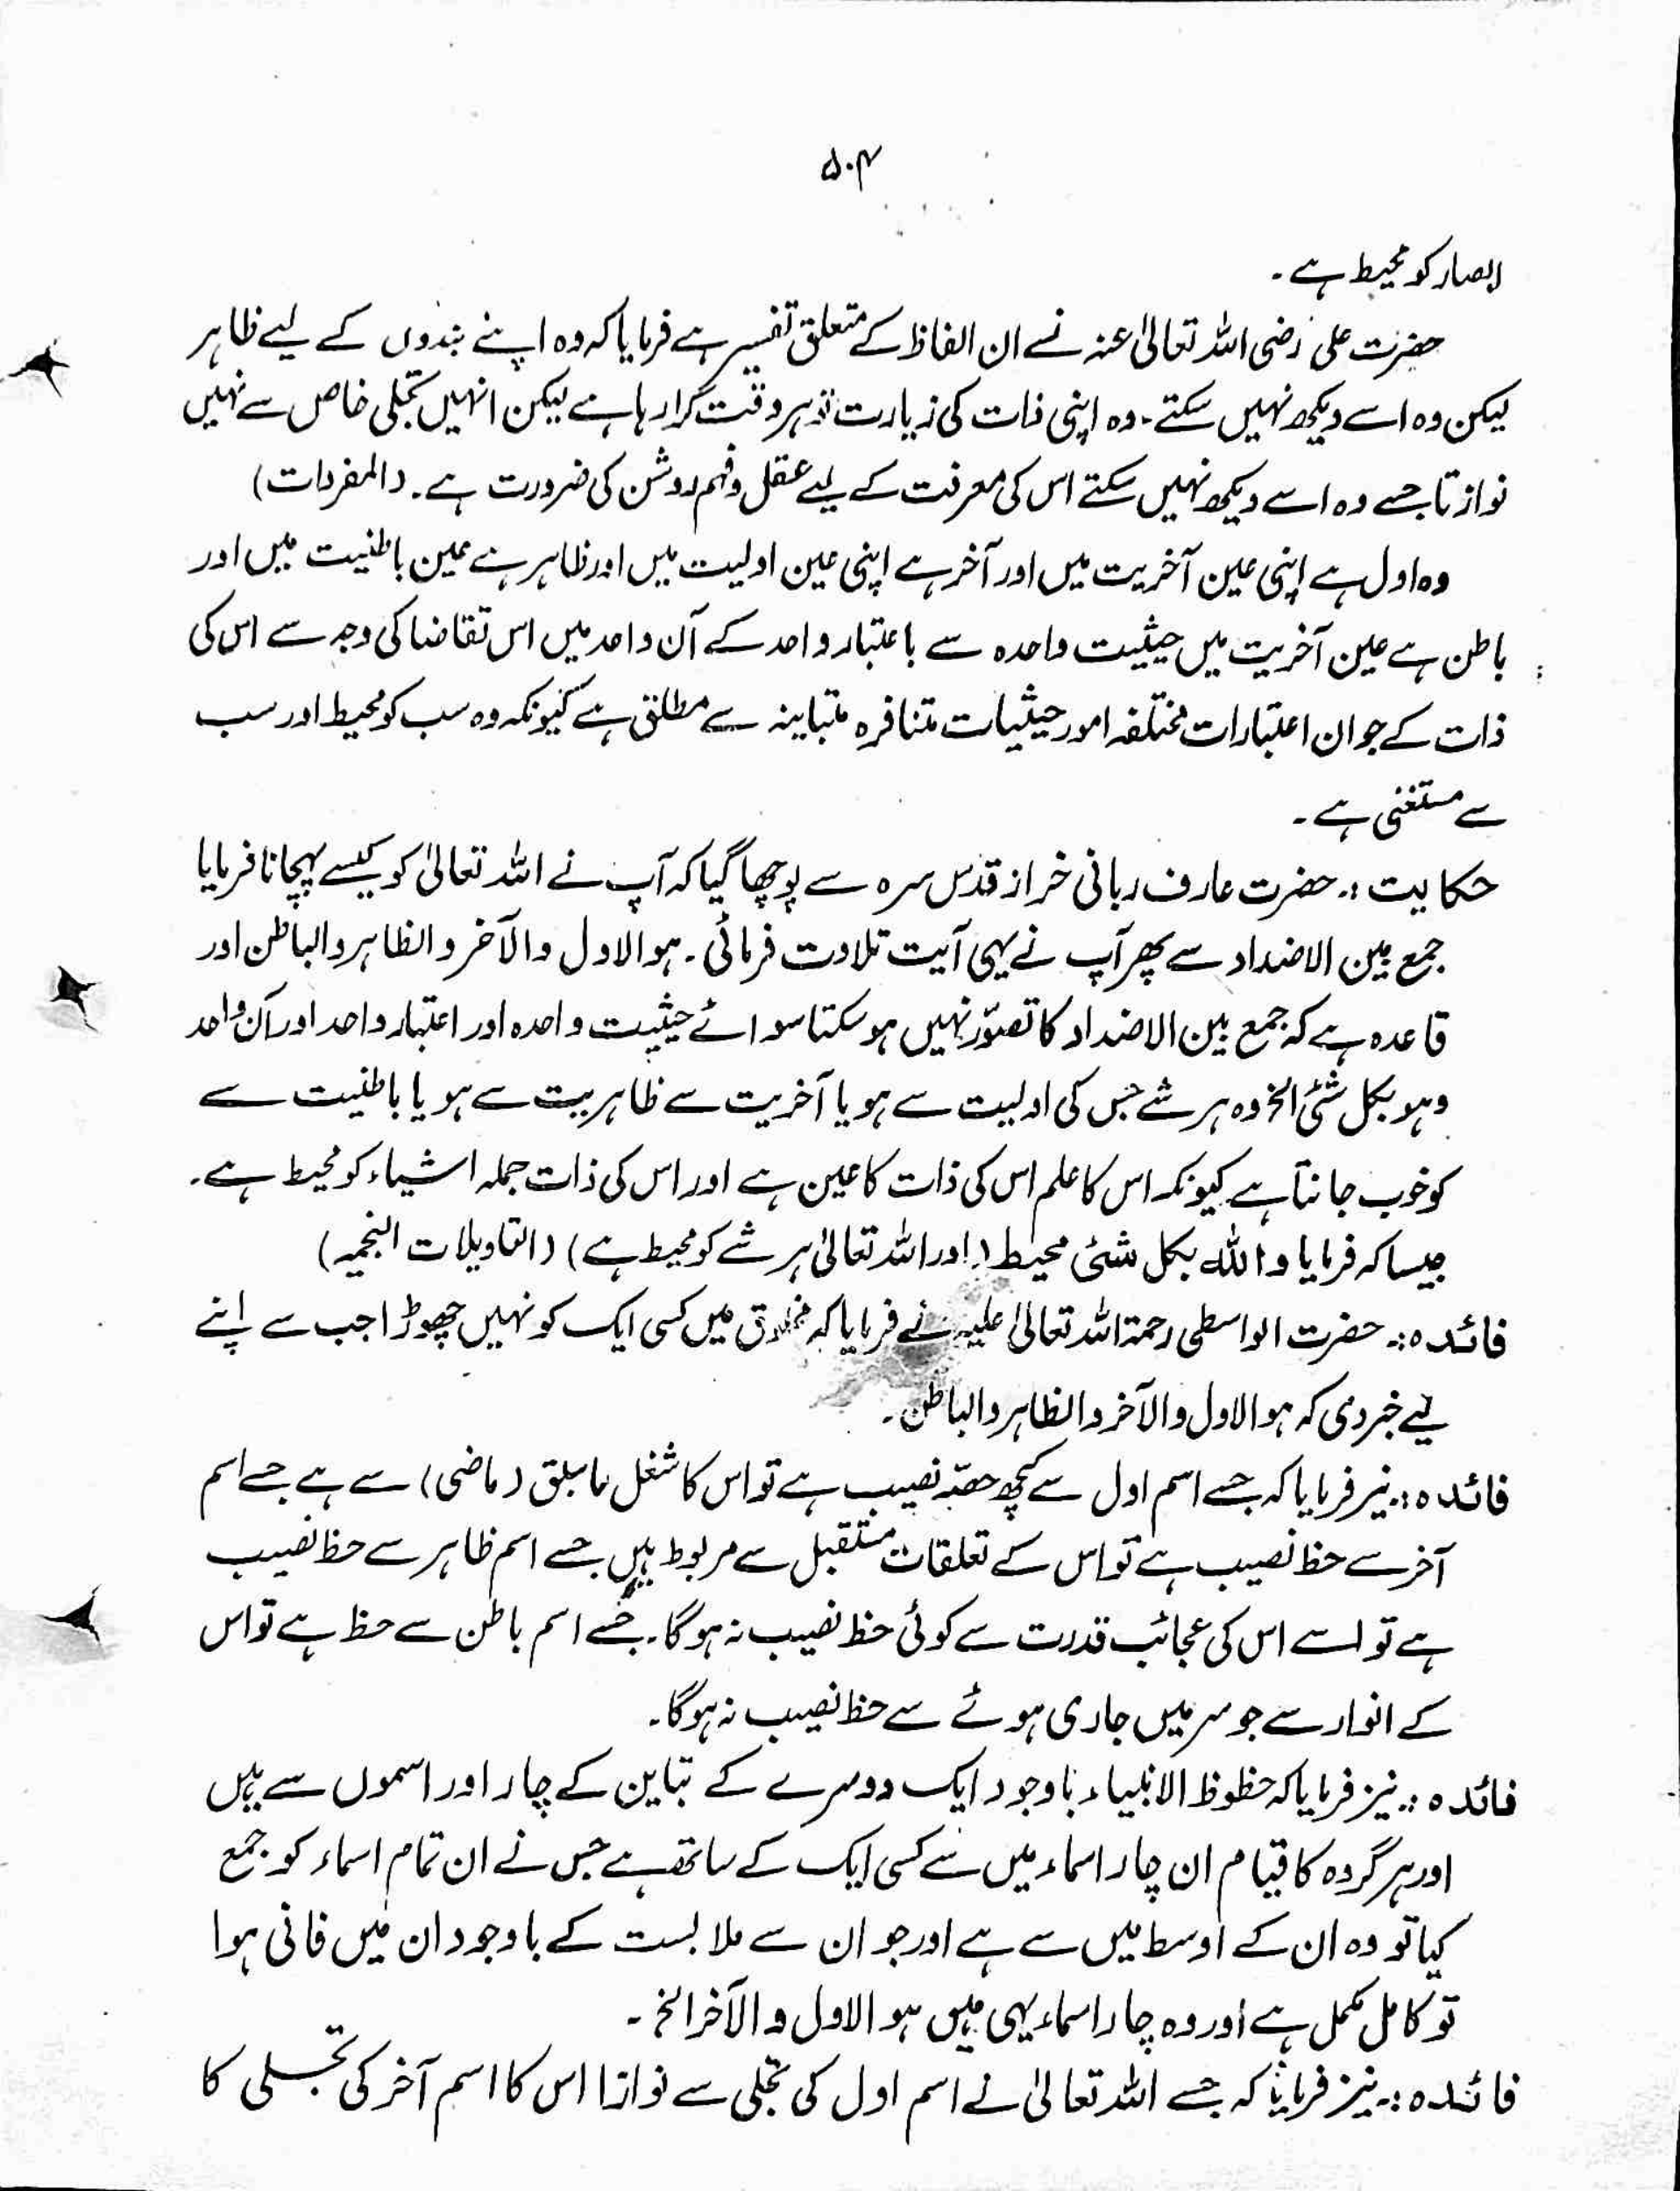 ۵۰۴
ابصار کو محیط ہے ۔
حضرت علی رضی اللہ تعالیٰ عنہ نے ان الفاظ کے متعلق تفسیر ہے فرمایا کہ وہ اپنے بندوں کے لیے ظاہر
لیکن وہ اسے دیکھ نہیں سکتے ۔ وہ اپنی ذات کی زیارت تو ہر وقت کرا رہا ہے لیکن انہیں تجلی خاص سے نہیں
نوازتا جسے وہ اسے دیکھ نہیں سکتے اس کی معرفت کے لیے عقل و فہم روشن کی ضرورت ہے ۔ (المفردات)
وہ اول ہے اپنی عین آخریت میں اور آخر ہے اپنی عین اولیت میں اور ظاہر ہے عین باطنیت میں اور
باطن ہے عین آخریت میں حیثیت واحدہ سے باعتبار واحد کے آن واحد میں اس تقاضا کی وجہ سے اس کی
ذات کے جو ان اعتبارات مختلفہ امور حیثیات متنافرہ متباینہ سے مطلق ہے کیونکہ وہ سب کو محیط اور سب
سے مستغنی ہے ۔
حکایت :۔ حضرت عارف ربانی خراز قدس سرہ سے پوچھا گیا کہ آپ نے اللہ تعالیٰ کو کیسے پہچانا فرمایا
جمع بین الاضداد سے پھر آپ نے یہی آیت تلاوت فرمائی ۔ ہو الاول والآخر والظاہر والباطن اور
قاعدہ ہے کہ جمع بین الاضداد کا تصوّر نہیں ہو سکتا سوائے حیثیت واحدہ اور اعتبار واحد اور آن واحد
وہو بکل شئی الخ وہ ہر شے جس کی اولیت سے ہو یا آخریت سے ظاہریت سے ہو یا باطنیت سے
کو خوب جانتا ہے کیونکہ اس کا علم اس کی ذات کا عین ہے اور اس کی ذات جملہ اشیاء کو محیط ہے ۔
جیسا کہ فرمایا واللہ بکل شئی محیط (اور اللہ تعالیٰ ہر شے کو محیط ہے) (التاویلات النجمیہ)
فائدہ :۔ حضرت الواسطی رحمۃ اللہ تعالیٰ علیہ نے فرمایا کہ مخلوق میں کسی ایک کو نہیں چھوڑا جب سے اپنے
لیے خبر دی کہ ہو الاول والآخر والظاہر والباطن ۔
فائدہ :۔ نیز فرمایا کہ جسے اسم اول سے کچھ حصّہ نصیب ہے تو اس کا شغل ماسبق (ماضی) سے ہے جسے اسم
آخر سے حظ نصیب ہے تو اس کے تعلقات مستقبل سے مربوط ہیں جسے اسم ظاہر سے حظ نصیب
ہے تو اسے اس کی عجائب قدرت سے کوئی حظ نصیب نہ ہوگا ۔ جسے اسم باطن سے حظ ہے تو اس
کے انوار سے جو سر میں جاری ہوئے سے حظ نصیب نہ ہوگا ۔
فائدہ :۔ نیز فرمایا کہ حظوظ الانبیاء باوجود ایک دوسرے کے تباین کے چار اور اسموں سے ہیں
اور ہر گروہ کا قیام ان چار اسماء میں سے کسی ایک کے ساتھ ہے جس نے ان تمام اسماء کو جمع
کیا تو وہ ان کے اوسط میں سے ہے اور جو ان سے ملابست کے باوجود ان میں فانی ہوا
تو کامل مکمل ہے اور وہ چار اسماء یہی ہیں ہو الاول والآخر الخ ۔
فائدہ :۔ نیز فرمایا کہ جسے اللہ تعالیٰ نے اسم اول کی تجلی سے نوازا اس کا اسم آخر کی تجلی کا